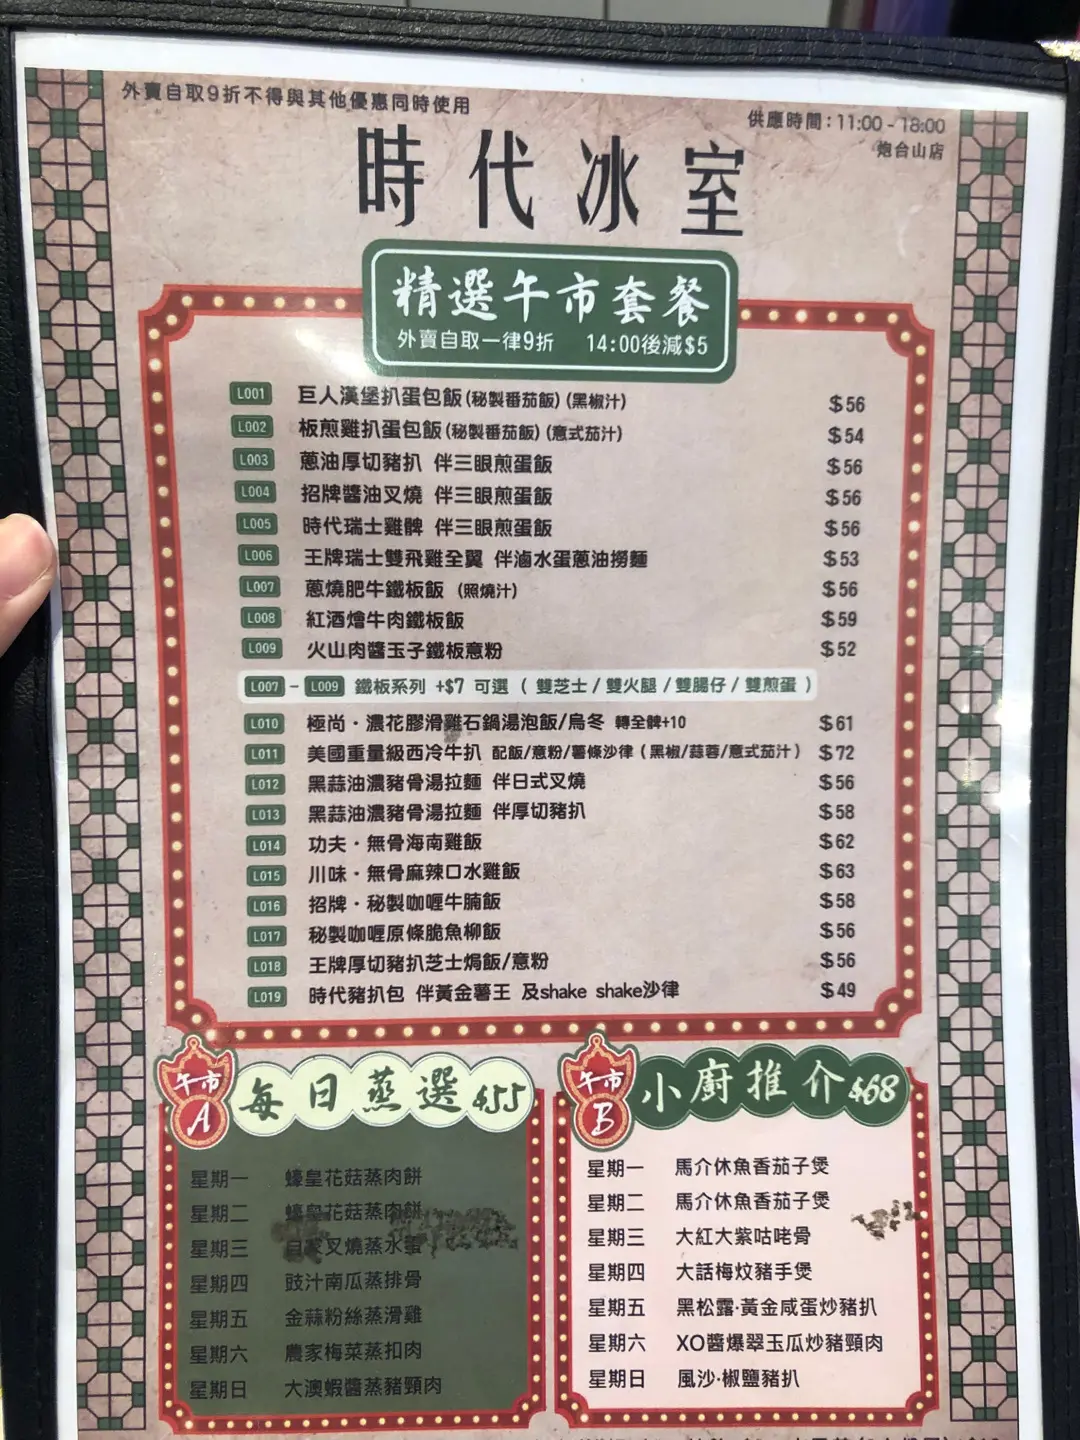 外賣自取9折不得與其他優惠同時使用
供應時間:11:00 - 18:00
炮台山店
時代冰室
精選午市套餐
外賣自取一律9折 14:00後減$5
L001 巨人漢堡扒蛋包飯(秘製番茄飯)(黑椒汁) $56
L002 板煎雞扒蛋包飯(秘製番茄飯)(意式茄汁) $54
L003 蔥油厚切豬扒 伴三眼煎蛋飯 $56
L004 招牌醬油叉燒 伴三眼煎蛋飯 $56
L005 時代瑞士雞髀 伴三眼煎蛋飯 $56
L006 王牌瑞士雙飛雞全翼 伴滷水蛋蔥油撈麵 $53
L007 蔥燒肥牛鐵板飯 (照燒汁) $56
L008 紅酒燴牛肉鐵板飯 $59
L009 火山肉醬玉子鐵板意粉 $52
L007 - L009 鐵板系列 +$7 可選 ( 雙芝士 / 雙火腿 / 雙腸仔 / 雙煎蛋 )
L010 極尚・濃花膠滑雞石鍋湯泡飯/烏冬 轉全髀+10 $61
L011 美國重量級西冷牛扒 配飯/意粉/薯條沙律 ( 黑椒/蒜蓉/意式茄汁 ) $72
L012 黑蒜油濃豬骨湯拉麵 伴日式叉燒 $56
L013 黑蒜油濃豬骨湯拉麵 伴厚切豬扒 $58
L014 功夫・無骨海南雞飯 $62
L015 川味・無骨麻辣口水雞飯 $63
L016 招牌・秘製咖喱牛腩飯 $58
L017 秘製咖喱原條脆魚柳飯 $56
L018 王牌厚切豬扒芝士焗飯/意粉 $56
L019 時代豬扒包 伴黃金薯王 及shake shake沙律 $49
午市A 每日蒸選 $55
星期一 蠔皇花菇蒸肉餅
星期二 蠔皇花菇蒸肉餅
星期三 自家叉燒蒸水蛋
星期四 豉汁南瓜蒸排骨
星期五 金蒜粉絲蒸滑雞
星期六 農家梅菜蒸扣肉
星期日 大澳蝦醬蒸豬頸肉
午市B 小廚推介 $68
星期一 馬介休魚香茄子煲
星期二 馬介休魚香茄子煲
星期三 大紅大紫咕咾骨
星期四 大話梅炆豬手煲
星期五 黑松露・黃金咸蛋炒豬扒
星期六 XO醬爆翠玉瓜炒豬頸肉
星期日 風沙・椒鹽豬扒